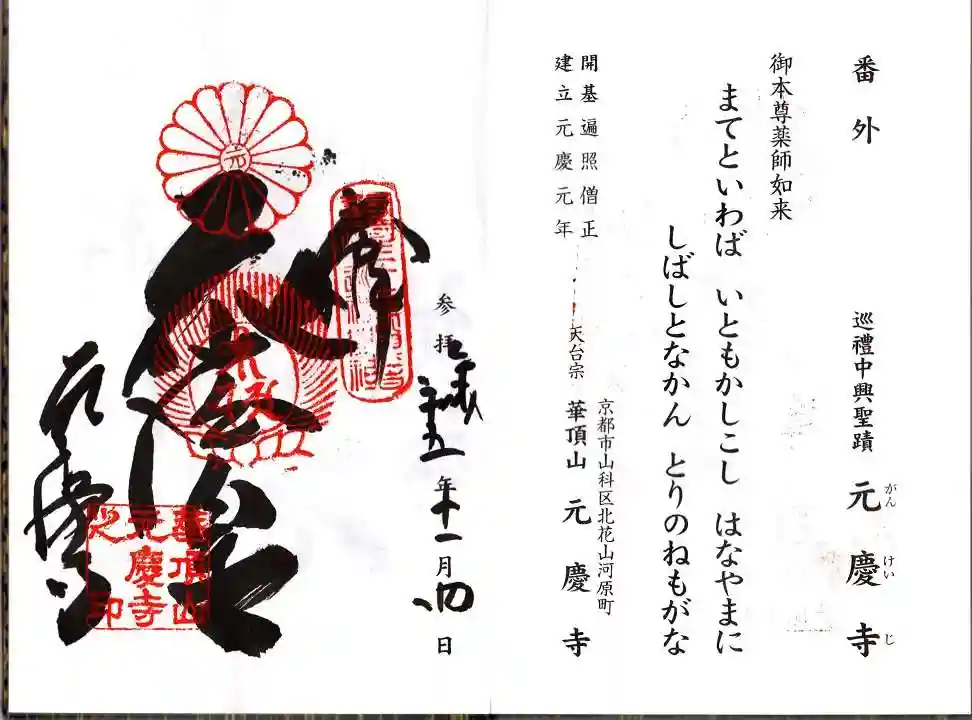 番外
巡禮中興聖蹟 元慶寺
がんけいじ
御本尊薬師如来
まてといわば いともかしこし はなやまに
しばしとなかん とりのねもがな
開基遍照僧正
建立元慶元年
京都市山科区北花山河原町
天台宗 華頂山 元慶寺
参拝 平成 年十一月 四日
奉
元
元慶寺
華頂山
元慶寺
之印